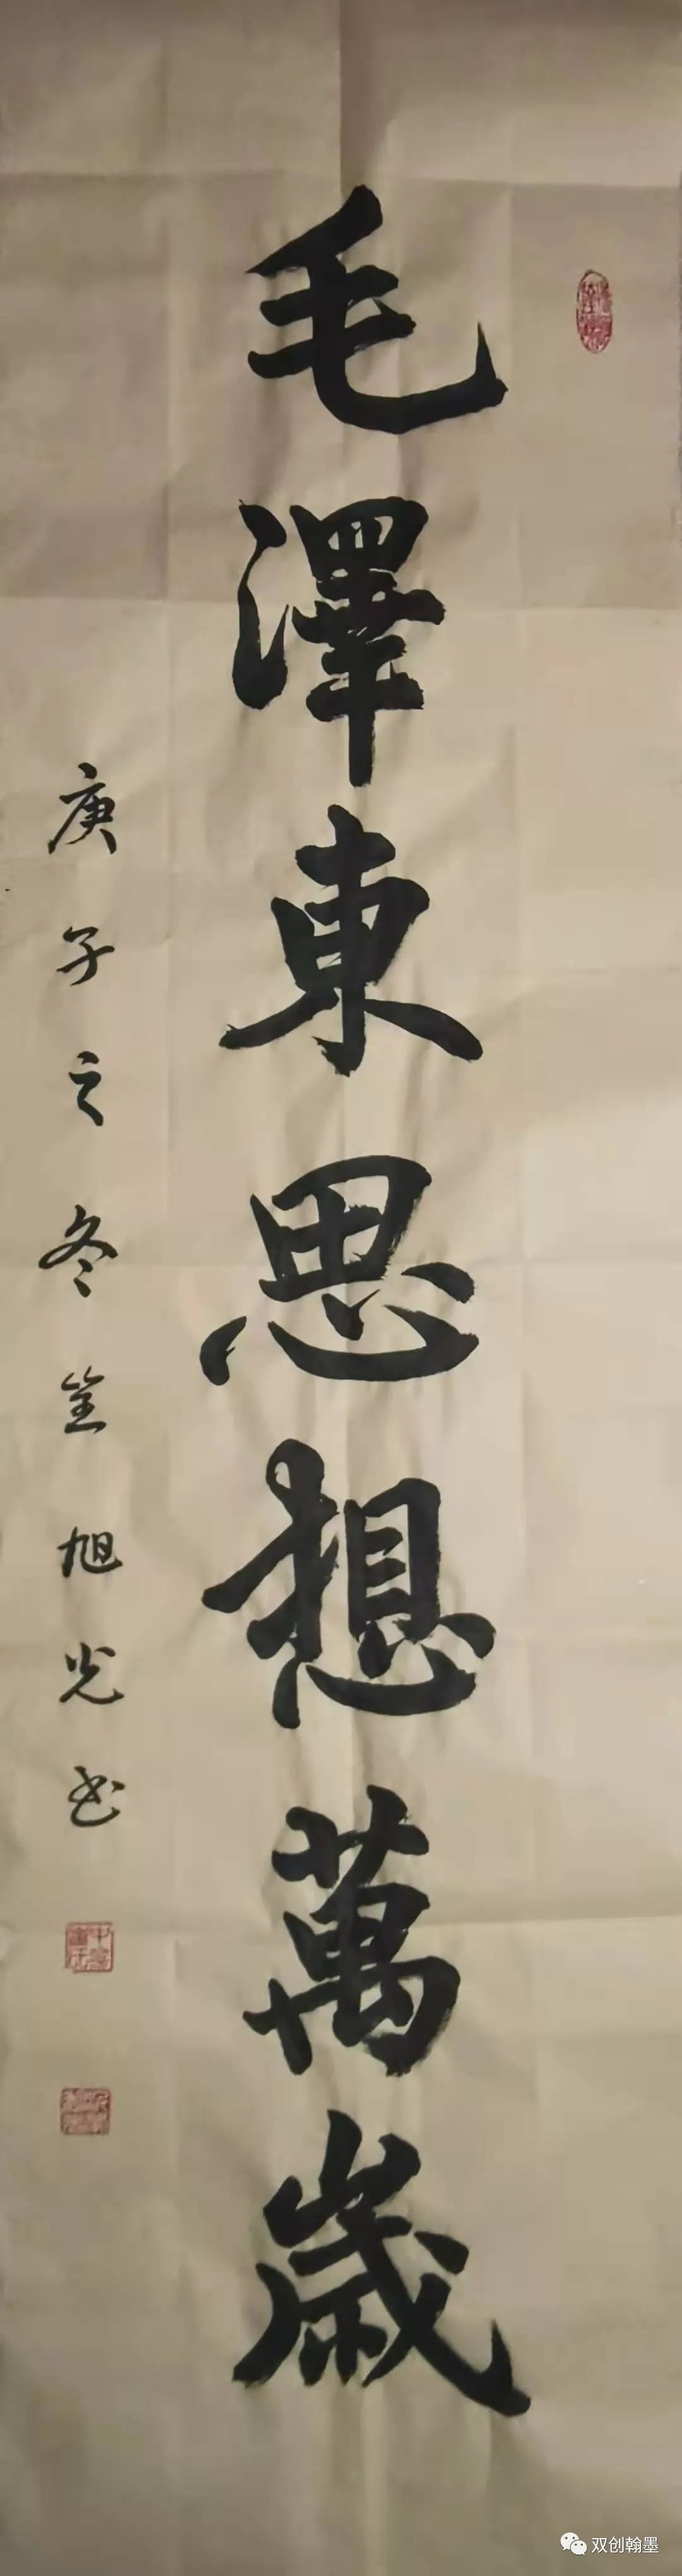 毛澤東思想萬歲
庚子之冬笙旭光书
双创翰墨